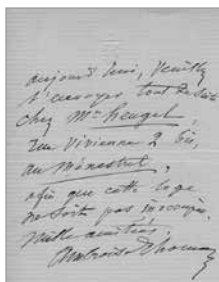 aujourd'hui, veuillez
l'envoyer tout de suite
chez Mr. Heugel,
rue Vivienne 2 bis,
au Ménestrel,
afin que cette loge
ne soit pas inoccupée.
Mille amitiés.
Ambroise Thomas